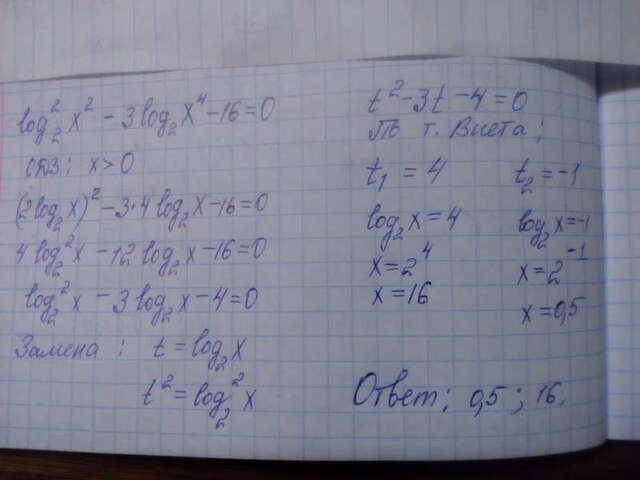 log₂² x² - 3 log₂ x⁴ - 16 = 0
ОДЗ: x > 0
(2 log₂ x)² - 3·4 log₂ x - 16 = 0
4 log₂² x - 12 log₂ x - 16 = 0
log₂² x - 3 log₂ x - 4 = 0
Замена: t = log₂ x
t² = log₂² x
t² - 3t - 4 = 0
По т. Виета;
t₁ = 4 t₂ = -1
log₂ x = 4 log₂ x = -1
x = 2⁴ x = 2⁻¹
x = 16 x = 0,5
Ответ: 0,5; 16.